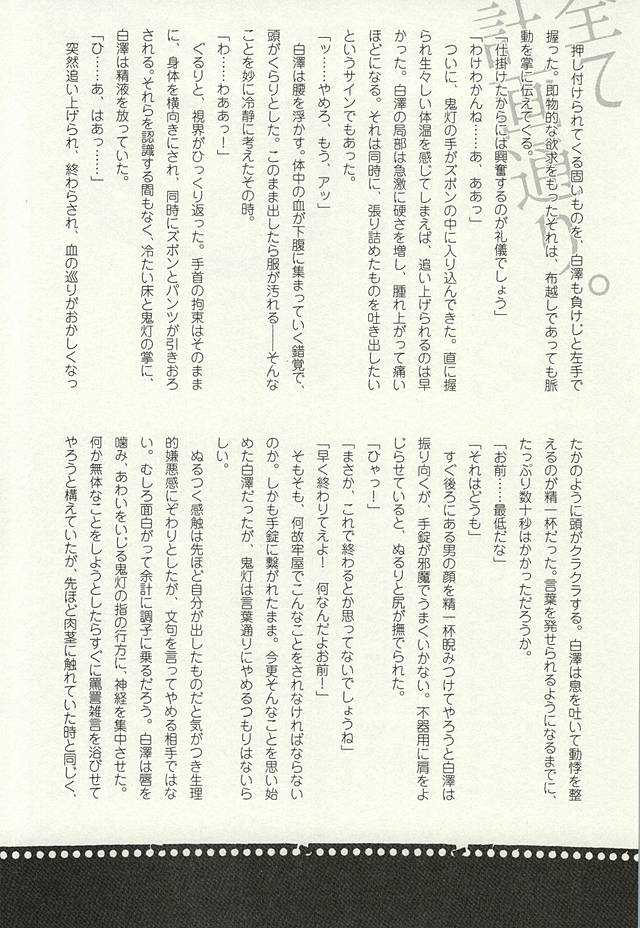 全て
計画通り。
押し付けられてくる固いものを、白澤も負けじと左手で
握った。即物的な欲求をもったそれは、布越しであっても脈
動を掌に伝えてくる。
「仕掛けたからには興奮するのが礼儀でしょう」
「わけわかんね……あ、ああっ」
ついに、鬼灯の手がズボンの中に入り込んできた。直に握
られ生々しい体温を感じてしまえば、追い上げられるのは早
かった。白澤の局部は急激に硬さを増し、腫れ上がって痛い
ほどになる。それは同時に、張り詰めたものを吐き出したい
というサインでもあった。
「ッ……やめろ、もう、アッ」
白澤は腰を浮かす。体中の血が下腹に集まっていく錯覚で、
頭がくらりとした。このまま出したら服が汚れる――そんな
ことを妙に冷静に考えたその時。
「わ……わああっ！」
ぐるりと、視界がひっくり返った。手首の拘束はそのまま
に、身体を横向きにされ、同時にズボンとパンツが引きおろ
される。それらを認識する間もなく、冷たい床と鬼灯の掌に、
白澤は精液を放っていた。
「ひ……あ、はあっ……」
突然追い上げられ、終わらされ、血の巡りがおかしくなっ
たかのように頭がクラクラする。白澤は息を吐いて動悸を整
えるのが精一杯だった。言葉を発せられるようになるまでに、
たっぷり数十秒はかかっただろうか。
「お前……最低だな」
「それはどうも」
すぐ後ろにある男の顔を精一杯睨みつけてやろうと白澤は
振り向くが、手錠が邪魔でうまくいかない。不器用に肩をよ
じらせていると、ぬるりと尻が撫でられた。
「ひゃっ！」
「まさか、これで終わるとか思ってないでしょうね」
「早く終わりてえよ！　何なんだよお前！」
そもそも、何故牢屋でこんなことをされなければならない
のか。しかも手錠に繋がれたまま。今更そんなことを思い始
めた白澤だったが、鬼灯は言葉通りにやめるつもりはないら
しい。
ぬるつく感触は先ほど自分が出したものだと気がつき生理
的嫌悪感にぞわりとしたが、文句を言ってやめる相手ではな
い。むしろ面白がって余計に調子に乗るだろう。白澤は唇を
噛み、あわいをいじる鬼灯の指の行方に、神経を集中させた。
何か無体なことをしようとしたらすぐに罵詈雑言を浴びせて
やろうと構えていたが、先ほど肉茎に触れていた時と同じく、